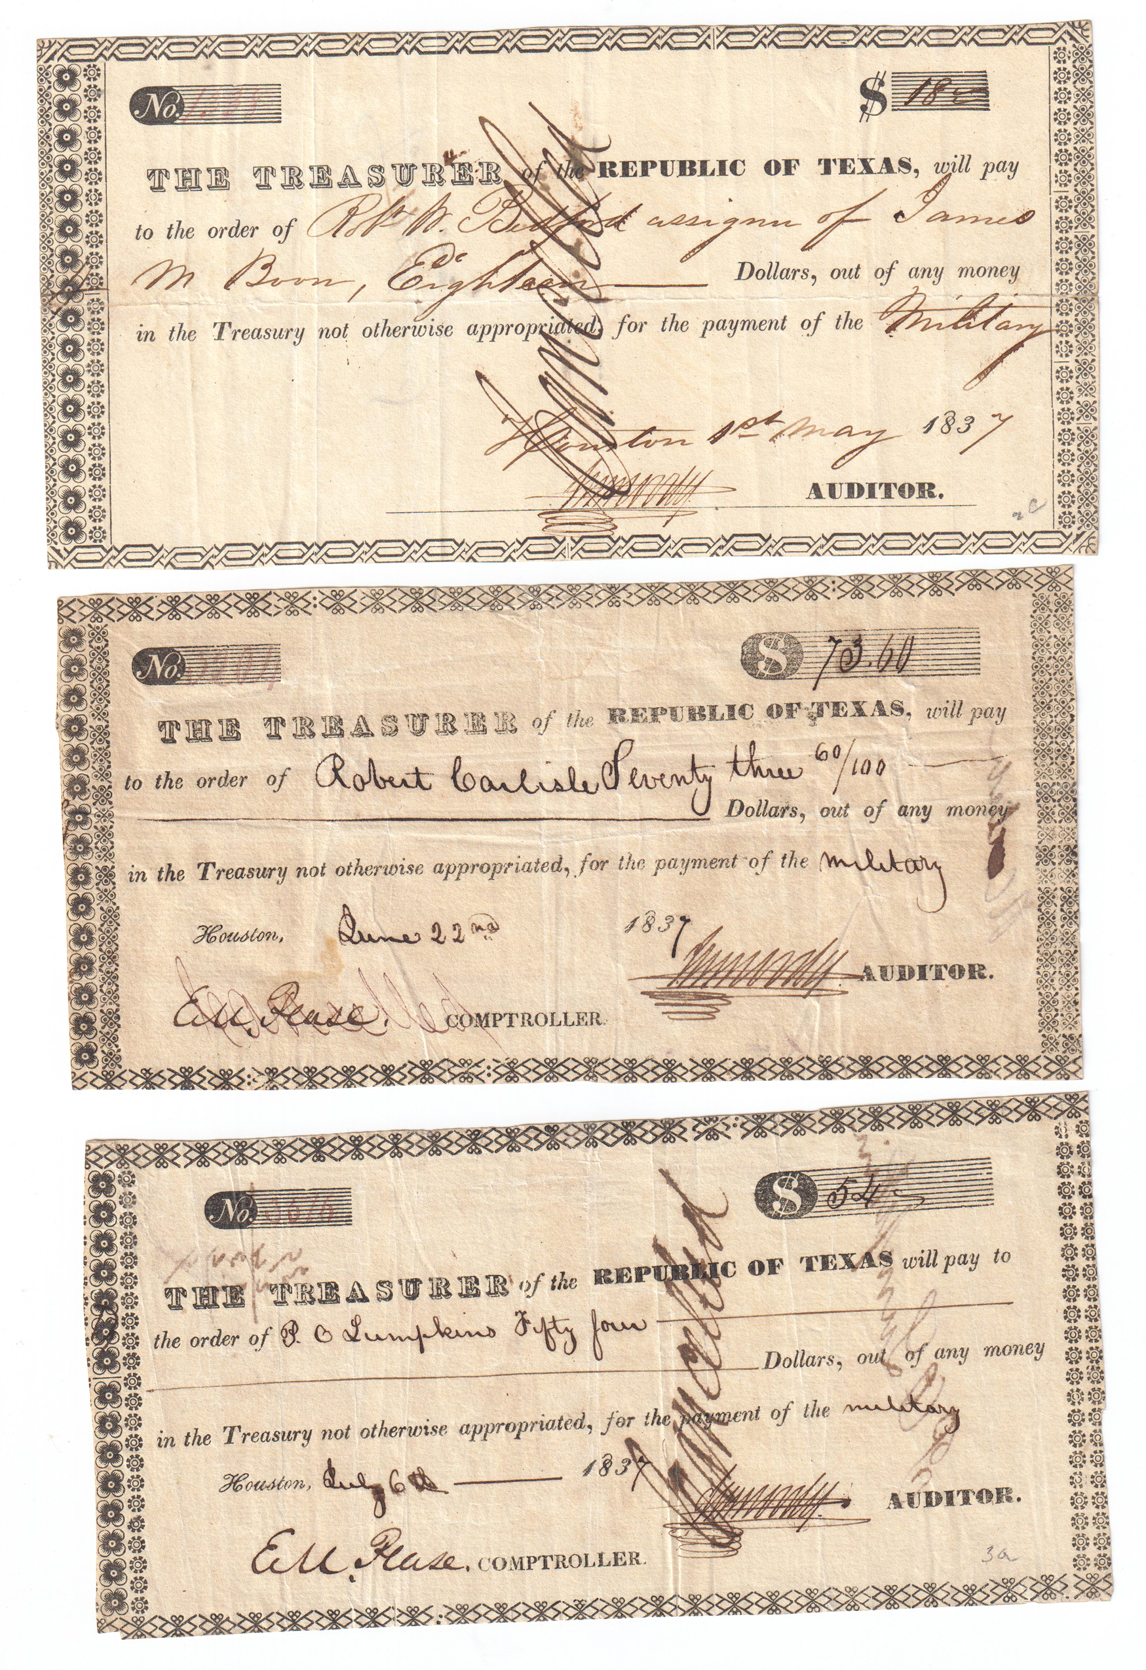 No.
$ 18
THE TREASURER of the REPUBLIC OF TEXAS, will pay
to the order of Robt W. Bedford assignee of James
M Boon, Eighteen Dollars, out of any money
in the Treasury not otherwise appropriated, for the payment of the Military
Houston 1st May 1837
AUDITOR.
Cancelled
No.
$ 73.60
THE TREASURER of the REPUBLIC OF TEXAS, will pay
to the order of Robert Carlisle Seventy three 60/100
Dollars, out of any money
in the Treasury not otherwise appropriated, for the payment of the military
Houston, June 22nd 1837
AUDITOR.
E M. Pease. COMPTROLLER.
Cancelled
No.
$ 54
THE TREASURER of the REPUBLIC OF TEXAS will pay to
the order of P. O Lumpkins Fifty four
Dollars, out of any money
in the Treasury not otherwise appropriated, for the payment of the military
Houston, July 6th 1837
AUDITOR.
E M. Pease. COMPTROLLER.
Cancelled
3a